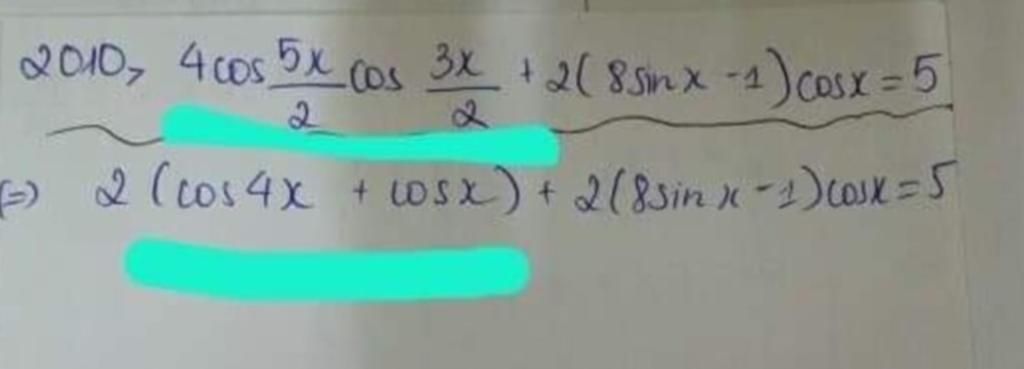 2010, 4cos 5x/2 cos 3x/2 + 2(8sinx -1)cosx = 5
(=) 2(cos4x + cosx) + 2(8sinx -1)cosx = 5